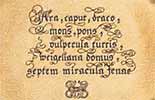 Ara, caput, draco,
mons, pons,
vulpecula turris,
Weigeliana domus,
septem miracula Jenae